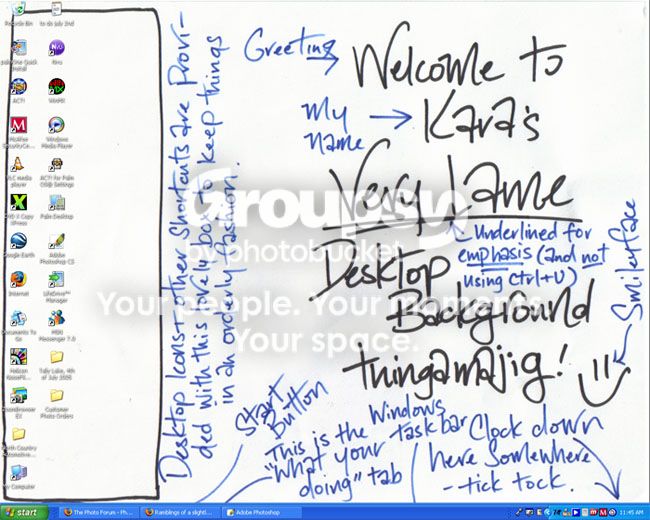 Recycle Bin
to do july 2nd
Palm Quick Install
Nvu
ACT!
WinMX
McAfee SecurityCe...
Windows Media Player
VLC media player
ACT! for Palm OS® Settings
DVD X Copy XPress
Palm Desktop
Google Earth
Adobe Photoshop CS
Internet
LifeDrive™ Manager
Documents To Go
MSN Messenger 7.0
Tally Lake, 4th of July 2005
Customer Photo Orders
North Country Automotive...
My Computer
Desktop Icons + other shortcuts are Provi-
ded with this lovely box to keep things
in an orderly fashion.
Greeting
Welcome to
my name
Kara's
Very Lame
Underlined for
emphasis (and not
using Ctrl+U)
Desktop
Background
thingamajig!
Smileyface
Start
Button
This is the Windows taskbar
"What your
doing" tab
Clock down
here somewhere
- tick tock.
Groupsy
by photobucket
Your people. Your moments.
Your space.
start
The Photo Forum - Ph...
Ramblings of a slightl...
Adobe Photoshop
11:45 AM